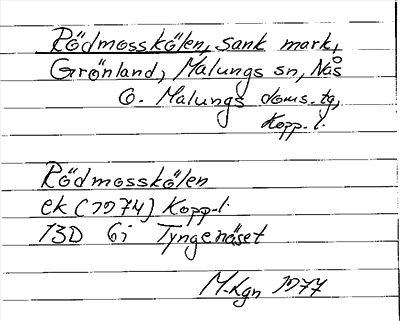 Rödmosskölen, sank mark,
Grönland, Malungs sn, Nås
o. Malungs doms. tg,
Kopp. l.
Rödmosskölen
ek (1974) Kopp-l
13D 6i Tyngenäset
M-Lgn 1977